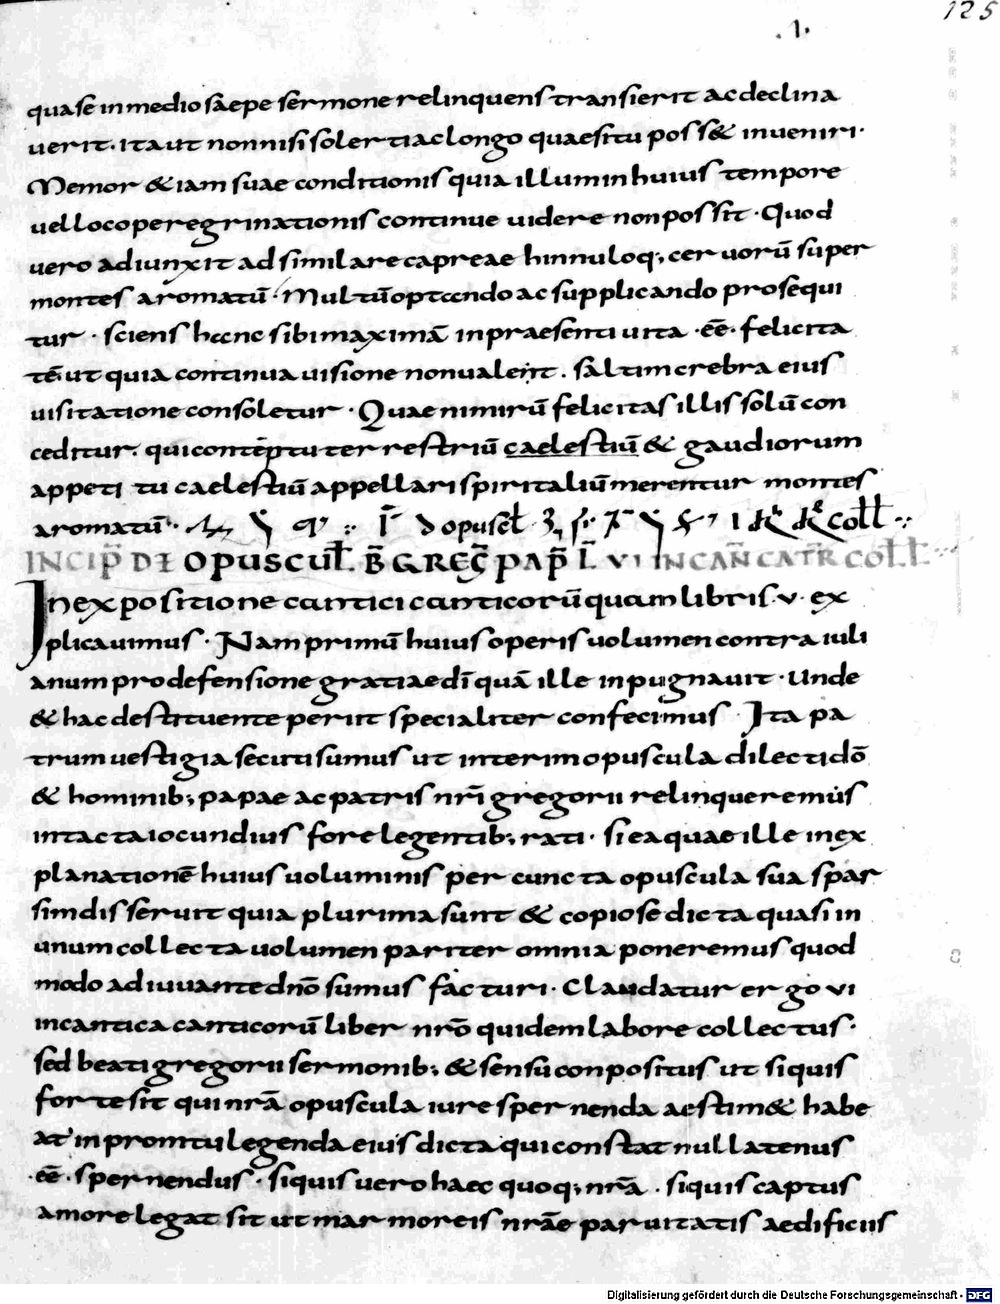 125
.1.
quase in medio saepe sermone relinquens transierit ac declina
uerit. ita ut non nisi solertia c longo quaesitu poss& inueniri.
Memor &iam suae conditionis quia illum in huius tempore
uel loco peregrinationis continue uidere non possit. Quod
uero adiunxit adsimilare capreae hinnuloq; ceruorū super
montes aromatū. Multū optando ac supplicando prosequi
tur. sciens hanc sibi maximā in praesenti uita .eē. felicita
tē. ut quia continua uisione non ualent. saltim crebra eius
uisitatione consoletur. Quae nimirū felicitas illis solū con
ceditur. qui contēptu terrestriū caelestiū & gaudiorum
appetitu caelestiū appellari spiritaliū merentur montes
aromatū.
INCIP̄ DE OPUSCUL̄. B̄ GREḠ PAP̄ L̄ VI IN CAN̄ CATR̄ COLL̄
In expositione cantici canticorū quam libris .v. ex
plicauimus. Nam primū huius operis uolumen contra iuli
anum pro defensione gratiae dī quā ille inpugnauit. Unde
& hac destituente periit specialiter confecimus. Ita pa
trum uestigia secuti sumus ut interim opuscula dilecti dō
& hominib; papae ac patris nr̄i gregorii relinqueremus
intacta iocundius fore legentib; rati. si ea quae ille in ex
planationē huius uoluminis per cuncta opuscula sua spar
sim disseruit quia plurima sunt & copiose dicta quasi in
unum collecta uolumen pariter omnia poneremus quod
modo adiuuante dn̄o sumus facturi. Claudatur ergo vi
in cantica canticorū liber nr̄o quidem labore collectus.
sed beati gregorii sermonib; & sensū conpositus ut siquis
forte sit qui nr̄ā opuscula iure spernenda aestim& habe
at in promtu legenda eius dicta qui constat nullatenus
.eē. spernendus. siquis uero haec quoq; nr̄ā. siquis captus
amore legat sit ut marmoreis nr̄ae paruitatis aedificiis
Digitalisierung gefördert durch die Deutsche Forschungsgemeinschaft - DFG